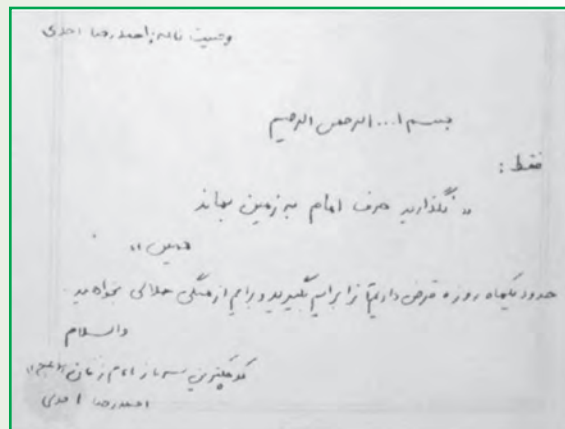 وصیت نامه: احمدرضا احدی
بسم ا... الرحمن الرحیم
فقط:
«نگذارید حرف امام به زمین بماند
همین»
حدود یکماه روزه قرض دارم تا برایم بگیرید و برایم از همگی حلالی بخواهید.
والسلام
کوچکترین سرباز امام زمان «عج»
احمدرضا احدی